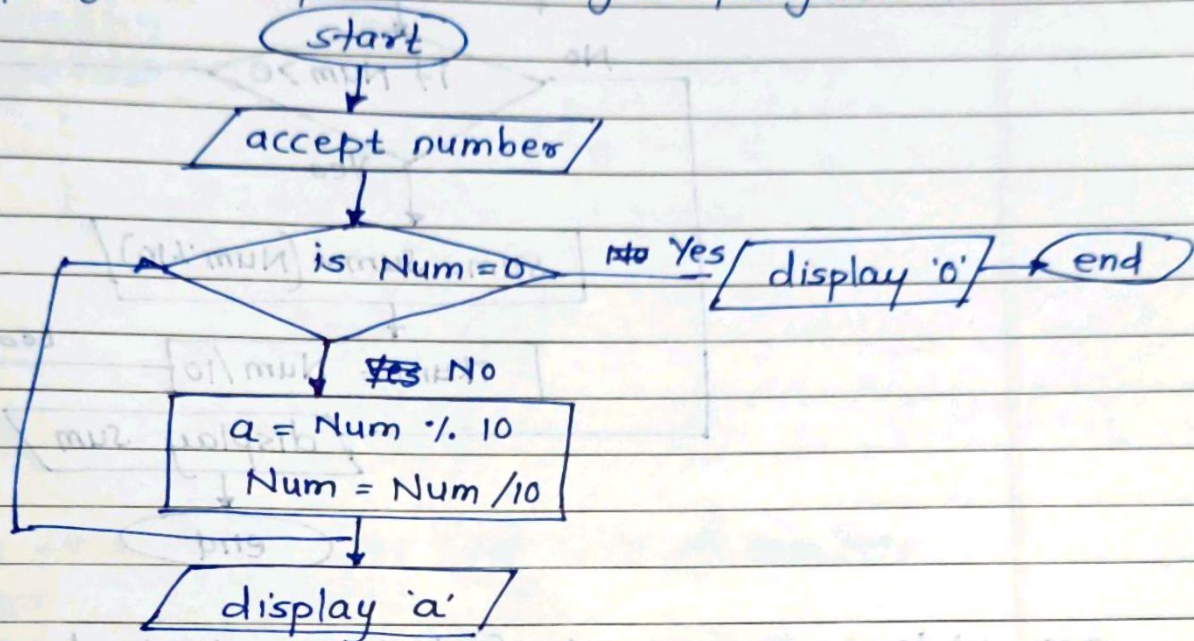 start
accept number
is Num = 0
No Yes
display '0'
end
Yes No
a = Num % 10
Num = Num /10
display 'a'